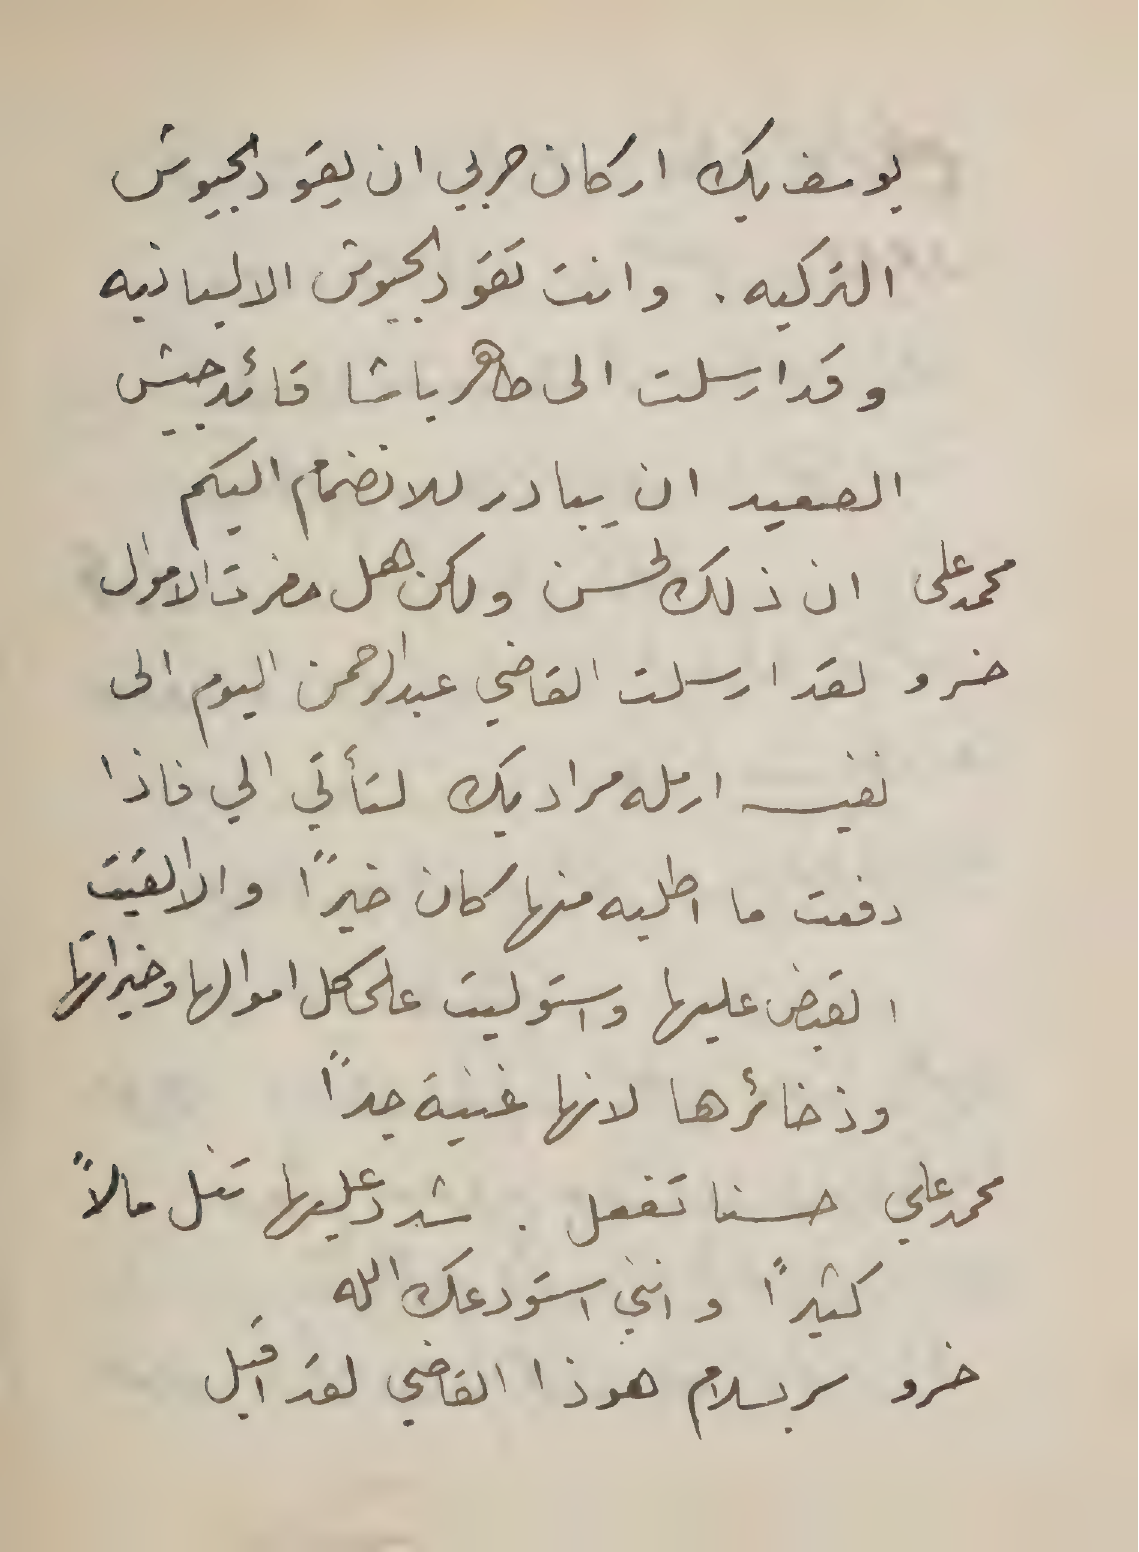 يوسف بك اركان حربي ان يقود الجيوش
التركيه . وانت تقود الجيوش الالبانيه
وقد ارسلت الى طاهر باشا قائد جيش
الصعيد ان يبادر للانضمام اليكم
محمد على ان ذلك لحسن ولكن هل حضرت الاموال
خسرو لقد ارسلت القاضي عبد الرحمن اليوم الى
نفيسه ارمله مراد بك لتأتي الي فاذا
دفعت ما اطلبه منها كان خيراً والا القيت
القبض عليها واستوليت على كل اموالها وخيراتها
وذخائرها لانها غنية جداً
محمد علي حسنا تفعل . شدد عليها تنل مالاً
كثيراً وانني استودعك الله
خسرو سر بسلام هوذا القاضي لقد اقبل